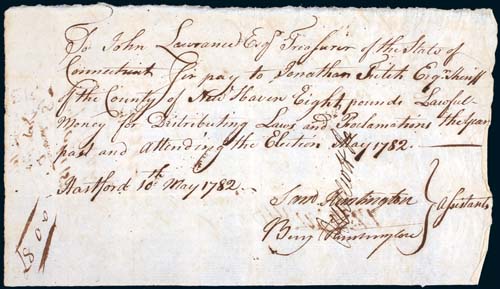 To John Lawrance Esqr Treasurer of the State of
Connecticut Sir pay to Jonathan Fitch Esqr Sheriff
of the County of New Haven Eight pounds Lawful
Money for Distributing Laws and Proclamations the year
past and Attending the Election May 1782.
Hartford 10th May 1782.
Saml Huntington
Benj Huntington
Assistants
800